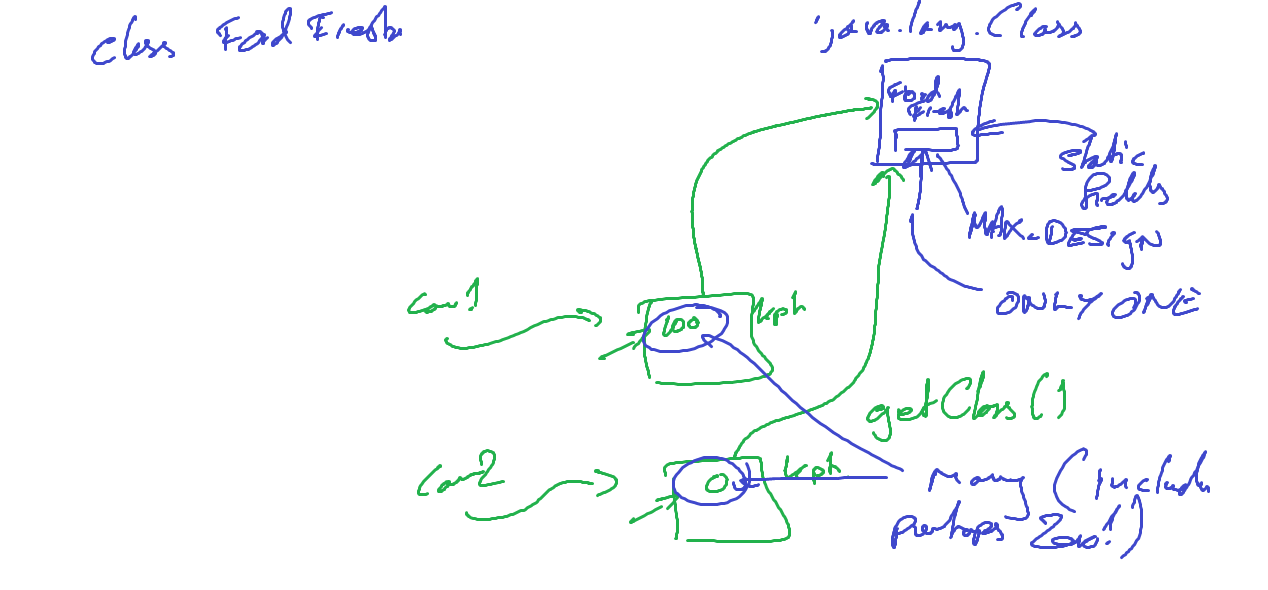 class Ford Fiesta
java.lang.Class
Ford
Fiesta
static
fields
MAX_DESIGN
ONLY ONE
car1
100
kph
getClass()
car2
0
kph
Many (include
perhaps Zero!)